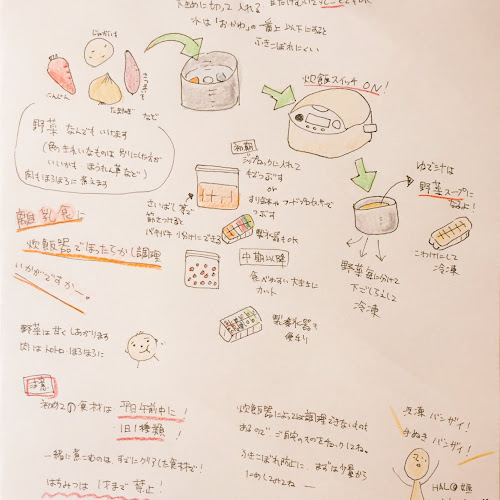 大きめに切って入れる
水は「おかゆ」の一番上以下にすると
ふきこぼれにくい
じゃがいも
にんじん
たまねぎ
さつまいも
など
炊飯スイッチ ON!
野菜なんでもいけます
肉もほろほろに煮えます
初期
ジップロックに入れて
そとからつぶす
or
すり鉢やフードプロセッサーで
つぶす
さいばし等で
筋をつけると
パキパキ小分けにできる
製氷器もOK
ゆで汁は
野菜スープに
なるよ!
こわけにして
冷凍
野菜毎に分けて
下ごしらえして
冷凍
離乳食に
炊飯器でほったらかし調理
いかがですかー。
中期以降
食べやすい大きさに
カット
製氷器も
便利
野菜は甘くしあがります
肉はトロトロほろほろに
注意
初めての食材は 平日午前中に!
1日1種類!
一緒に煮こむのは、すでにクリアした食材で!
はちみつは1才まで禁止!
炊飯器によっては調理できないものも
あるので ご自宅のものをチェックしてね。
ふきこぼれ防止に まずは少量から
ためしてみてねー
冷凍バンザイ!
手ぬきバンザイ!
HALO